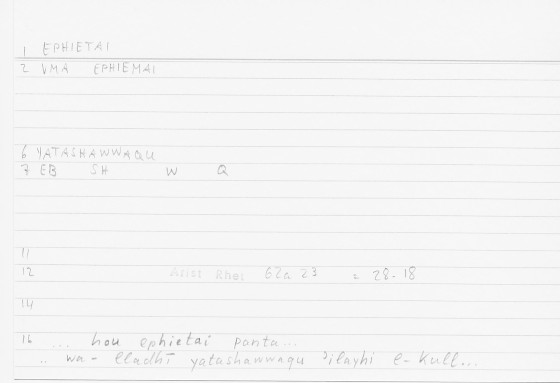 1 EPHIETAI
2 VMA EPHIEMAI
6 YATASHAWWAQU
7 EB SH W Q
11
12 Arist Rhet 62a 23 = 28-18
14
16 ... hou ephietai panta...
.. wa-lladhī yatashawwaqu ʾilayhi l-kull...